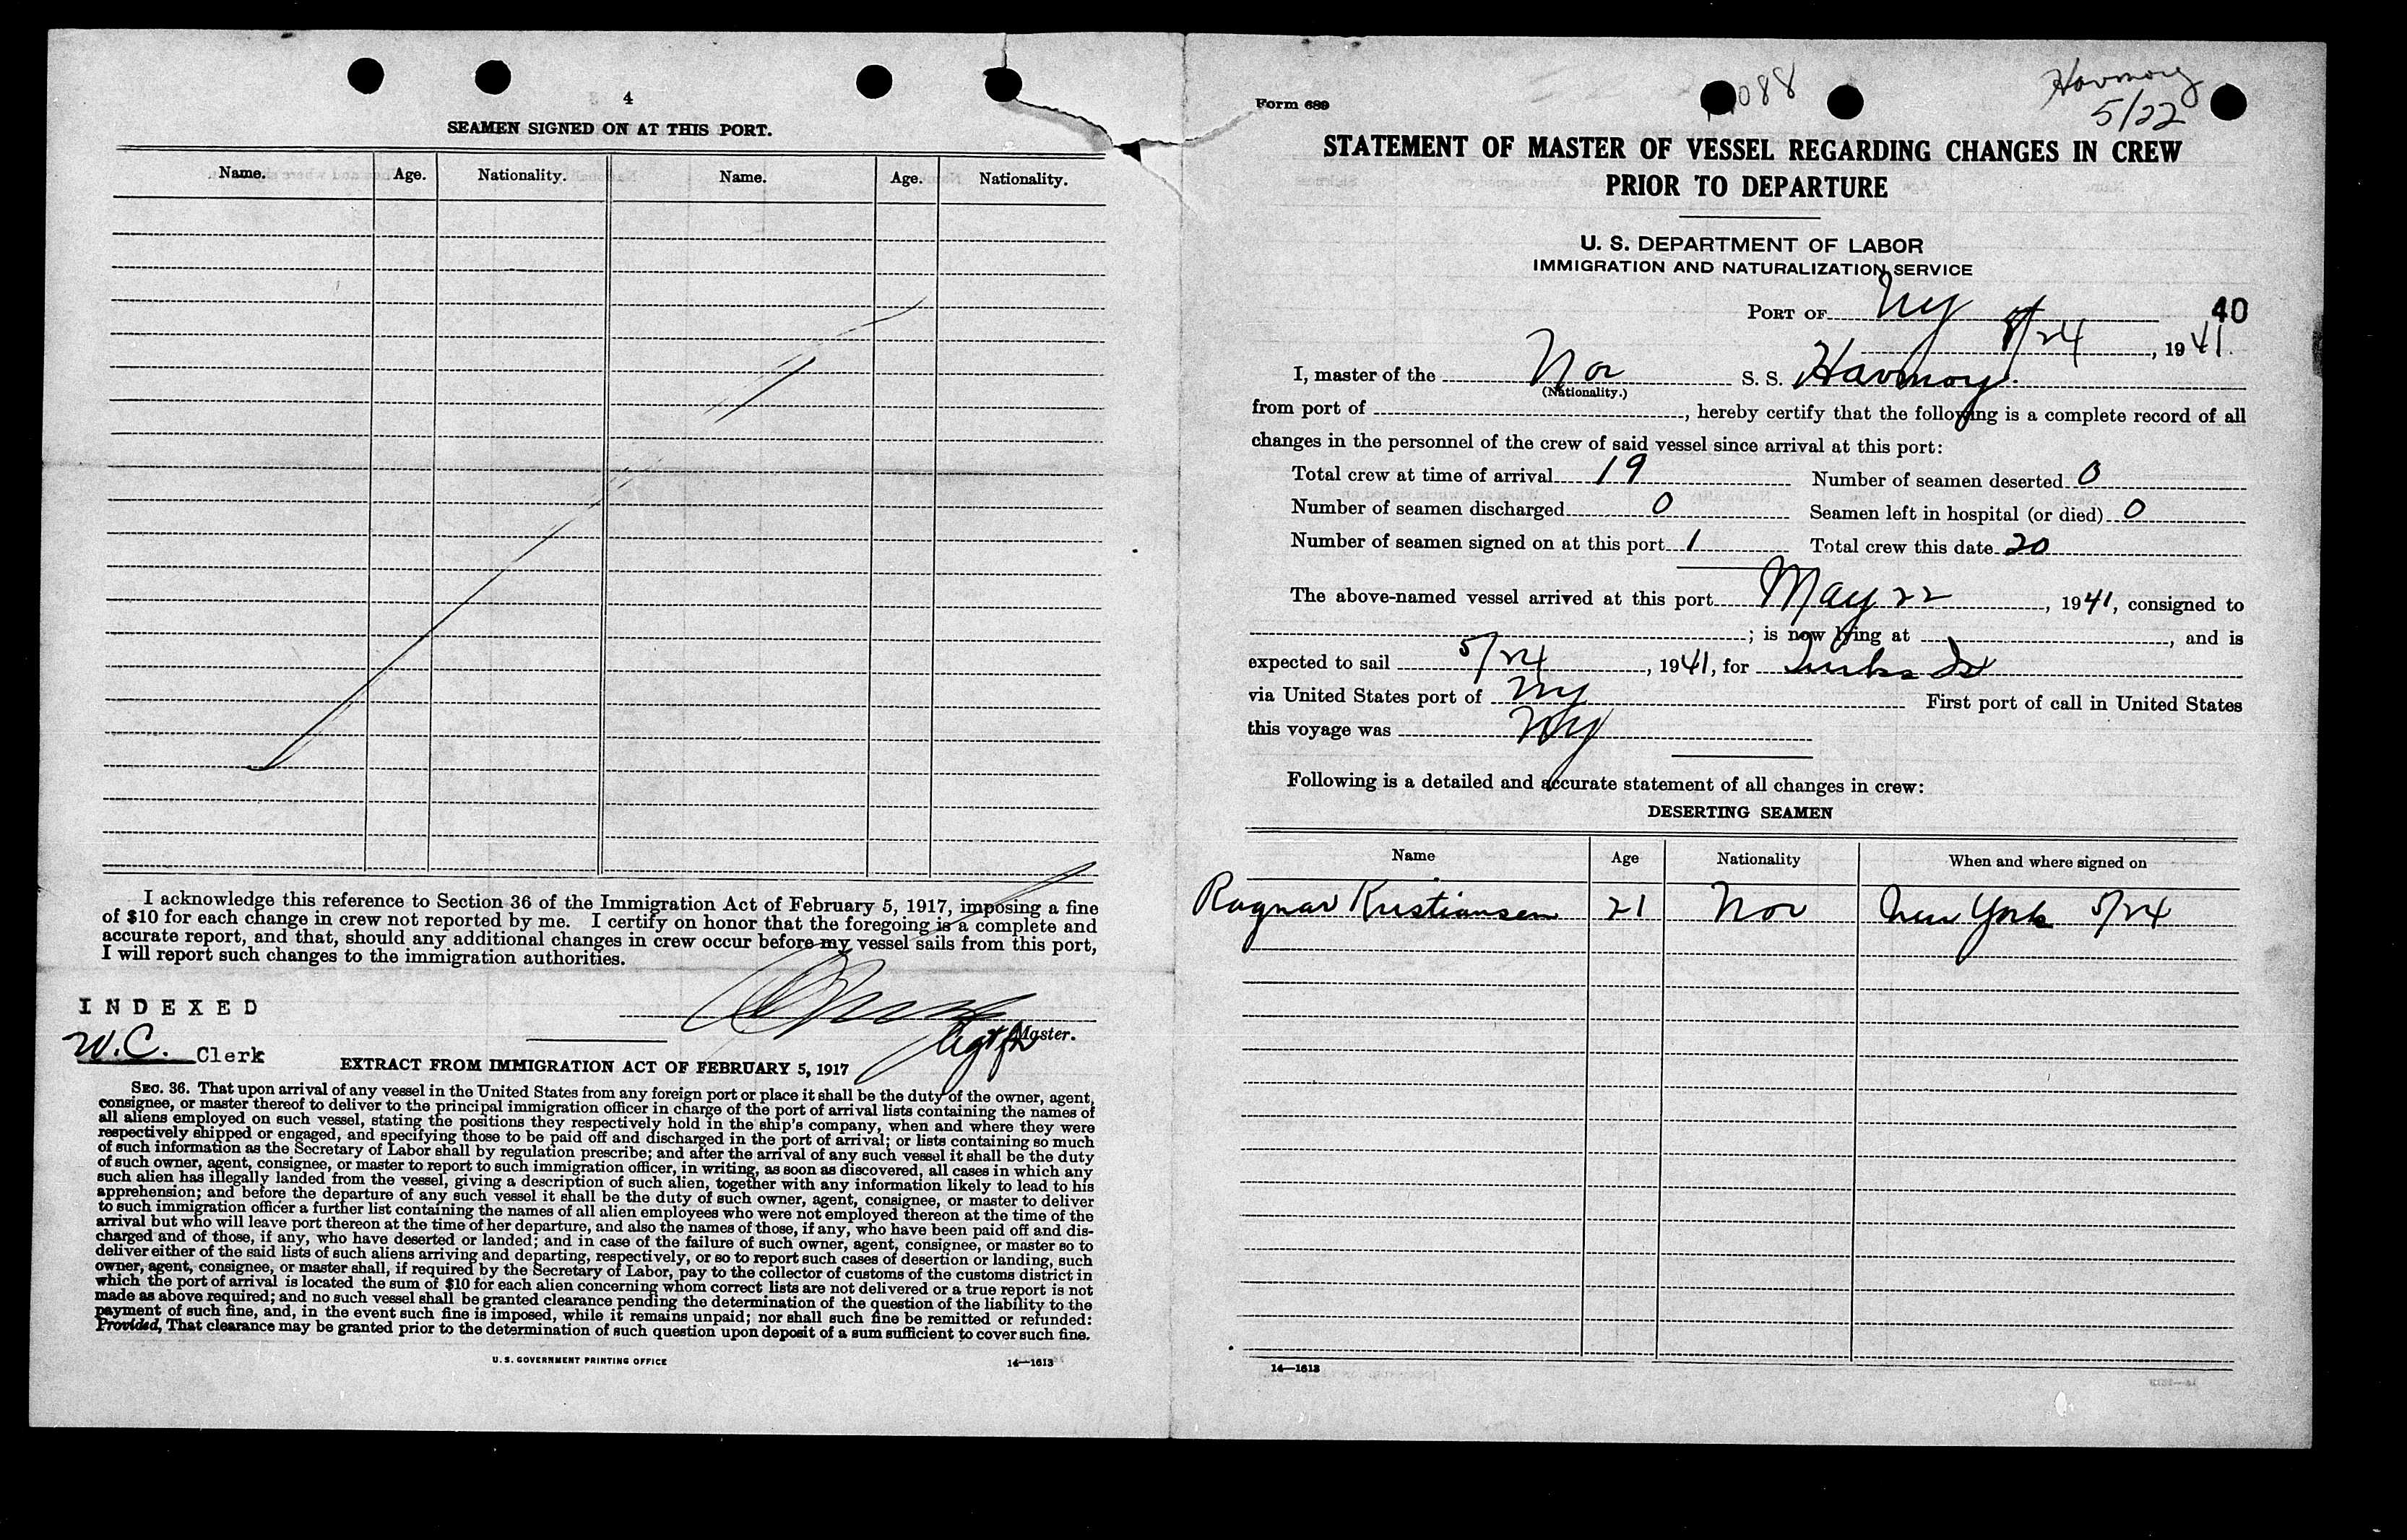 4
SEAMEN SIGNED ON AT THIS PORT.
Name. Age. Nationality. Name. Age. Nationality.
I acknowledge this reference to Section 36 of the Immigration Act of February 5, 1917, imposing a fine
of $10 for each change in crew not reported by me. I certify on honor that the foregoing is a complete and
accurate report, and that, should any additional changes in crew occur before my vessel sails from this port,
I will report such changes to the immigration authorities.
INDEXED
Master.
W.C. Clerk
EXTRACT FROM IMMIGRATION ACT OF FEBRUARY 5, 1917
SEC. 36. That upon arrival of any vessel in the United States from any foreign port or place it shall be the duty of the owner, agent,
consignee, or master thereof to deliver to the principal immigration officer in charge of the port of arrival lists containing the names of
all aliens employed on such vessel, stating the positions they respectively hold in the ship's company, when and where they were
respectively shipped or engaged, and specifying those to be paid off and discharged in the port of arrival; or lists containing so much
of such information as the Secretary of Labor shall by regulation prescribe; and after the arrival of any such vessel it shall be the duty
of such owner, agent, consignee, or master to report to such immigration officer, in writing, as soon as discovered, all cases in which any
such alien has illegally landed from the vessel, giving a description of such alien, together with any information likely to lead to his
apprehension; and before the departure of any such vessel it shall be the duty of such owner, agent, consignee, or master to deliver
to such immigration officer a further list containing the names of all alien employees who were not employed thereon at the time of the
arrival but who will leave port thereon at the time of her departure, and also the names of those, if any, who have been paid off and dis-
charged and of those, if any, who have deserted or landed; and in case of the failure of such owner, agent, consignee, or master so to
deliver either of the said lists of such aliens arriving and departing, respectively, or so to report such cases of desertion or landing, such
owner, agent, consignee, or master shall, if required by the Secretary of Labor, pay to the collector of customs of the customs district in
which the port of arrival is located the sum of $10 for each alien concerning whom correct lists are not delivered or a true report is not
made as above required; and no such vessel shall be granted clearance pending the determination of the question of the liability to the
payment of such fine, and, in the event such fine is imposed, while it remains unpaid; nor shall such fine be remitted or refunded:
Provided, That clearance may be granted prior to the determination of such question upon deposit of a sum sufficient to cover such fine.
U. S. GOVERNMENT PRINTING OFFICE 14—1613
Form 689
088
Havmoy
5/22
STATEMENT OF MASTER OF VESSEL REGARDING CHANGES IN CREW
PRIOR TO DEPARTURE
U. S. DEPARTMENT OF LABOR
IMMIGRATION AND NATURALIZATION SERVICE
PORT OF NY 40
5/24, 1941.
I, master of the Nor S. S. Havmoy.
(Nationality.)
from port of , hereby certify that the following is a complete record of all
changes in the personnel of the crew of said vessel since arrival at this port:
Total crew at time of arrival 19 Number of seamen deserted 0
Number of seamen discharged 0 Seamen left in hospital (or died) 0
Number of seamen signed on at this port 1 Total crew this date 20
The above-named vessel arrived at this port May 22, 1941, consigned to
; is now lying at , and is
expected to sail 5/24, 1941, for Turks Is
via United States port of NY First port of call in United States
this voyage was NY
Following is a detailed and accurate statement of all changes in crew:
DESERTING SEAMEN
Name Age Nationality When and where signed on
Ragnar Kristiansen 21 Nor New York 5/24
14—1613